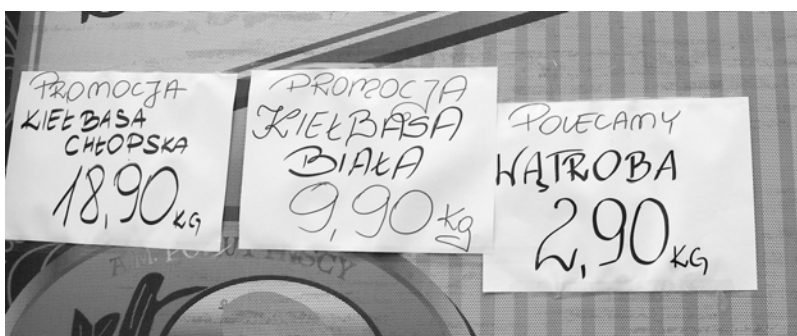 PROMOCJA
KIEŁBASA
CHŁOPSKA
18,90 KG
PROMOCJA
KIEŁBASA
BIAŁA
9,90 kg
POLECAMY
WĄTROBA
2,90 KG
A.M.